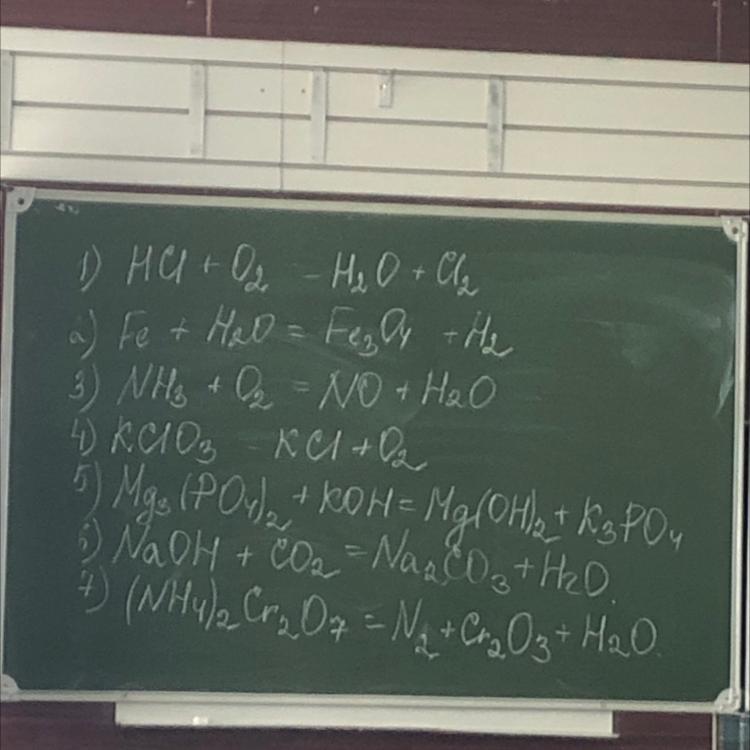 1) HCl + O₂ - H₂O + Cl₂
2) Fe + H₂O = Fe₃O₄ + H₂
3) NH₃ + O₂ = NO + H₂O
4) KClO₃ - KCl + O₂
5) Mg₃(PO₄)₂ + KOH = Mg(OH)₂ + K₃PO₄
6) NaOH + CO₂ = Na₂CO₃ + H₂O.
7) (NH₄)₂Cr₂O₇ = N₂ + Cr₂O₃ + H₂O.